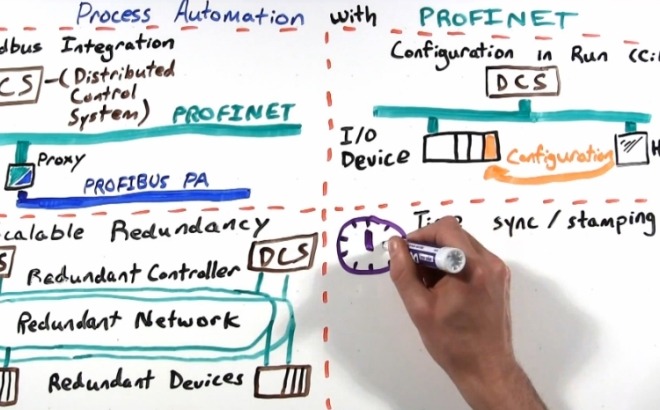 Process Automation with PROFINET
dbus Integration
CS
(Distributed
Control
System)
PROFINET
Proxy
PROFIBUS PA
Configuration in Run (Ci
DCS
I/O
Device
Configuration
H
calable Redundancy
S
DCS
Redundant Controller
Redundant Network
Redundant Devices
sync / stamping